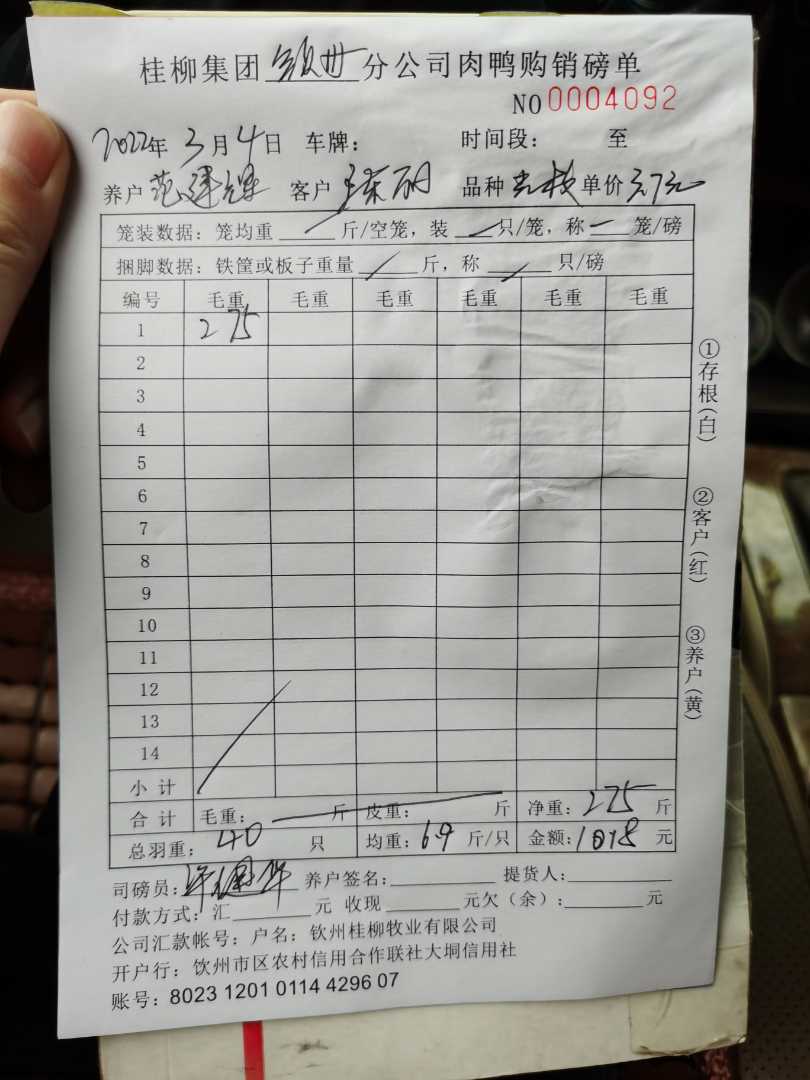 桂柳集团 分公司肉鸭购销磅单
NO 0004092
2022年 3月 4日 车牌: 时间段: 至
养户 范 客户 丽 品种 单价 3.7元
笼装数据: 笼均重 斤/空笼, 装 只/笼, 称 笼/磅
捆脚数据: 铁筐或板子重量 斤, 称 只/磅
编号 毛重 毛重 毛重 毛重 毛重 毛重
1 275
2
3
4
5
6
7
8
9
10
11
12
13
14
小计
合计 毛重: 斤 皮重: 斤 净重: 275 斤
总羽重: 40 只 均重: 6.9 斤/只 金额: 1018 元
司磅员: 许 养户签名: 提货人:
付款方式: 汇 元 收现 元欠(余): 元
公司汇款帐号: 户名: 钦州桂柳牧业有限公司
开户行: 饮州市区农村信用合作联社大垌信用社
账号: 8023 1201 0114 4296 07
①存根(白)
②客户(红)
③养户(黄)